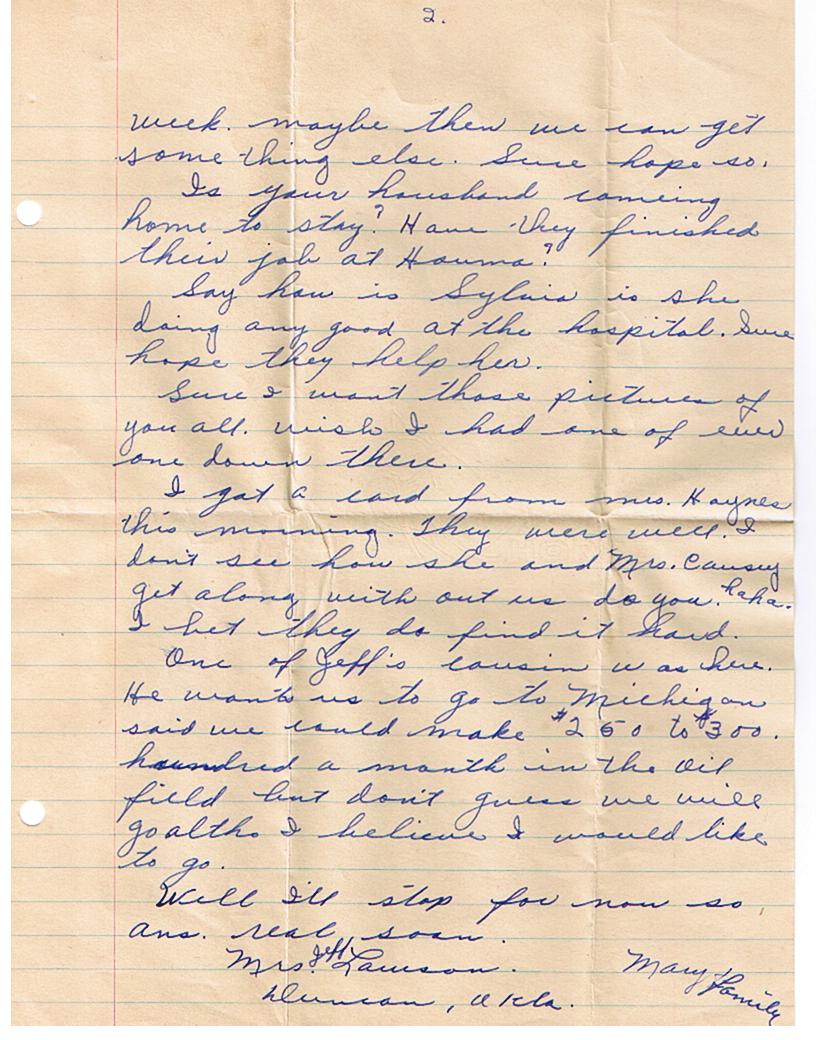 2.
week. maybe then we can get
some thing else. Sure hope so.
Is your housband comeing
home to stay? Have they finished
their job at Houma?
Say how is Sylvia is she
doing any good at the hospital. Sure
hope they help her.
Sure I want those pictures of
you all. wish I had one of ever
one down there.
I got a card from mrs. Haynes
this morning. They were well. I
don't see how she and Mrs. Causey
get along with out us do you. haha.
I bet they do find it hard.
One of Jeff's cousin was here.
He wants us to go to Michigan
said we could make $250 to $300.
houndred a month in the oil
field but don't guess we will
go altho I believe I would like
to go.
Well I'll stop for now so
ans. real soon.
Mrs. Jeff Lawson. Mary Family
Duncan, Okla.